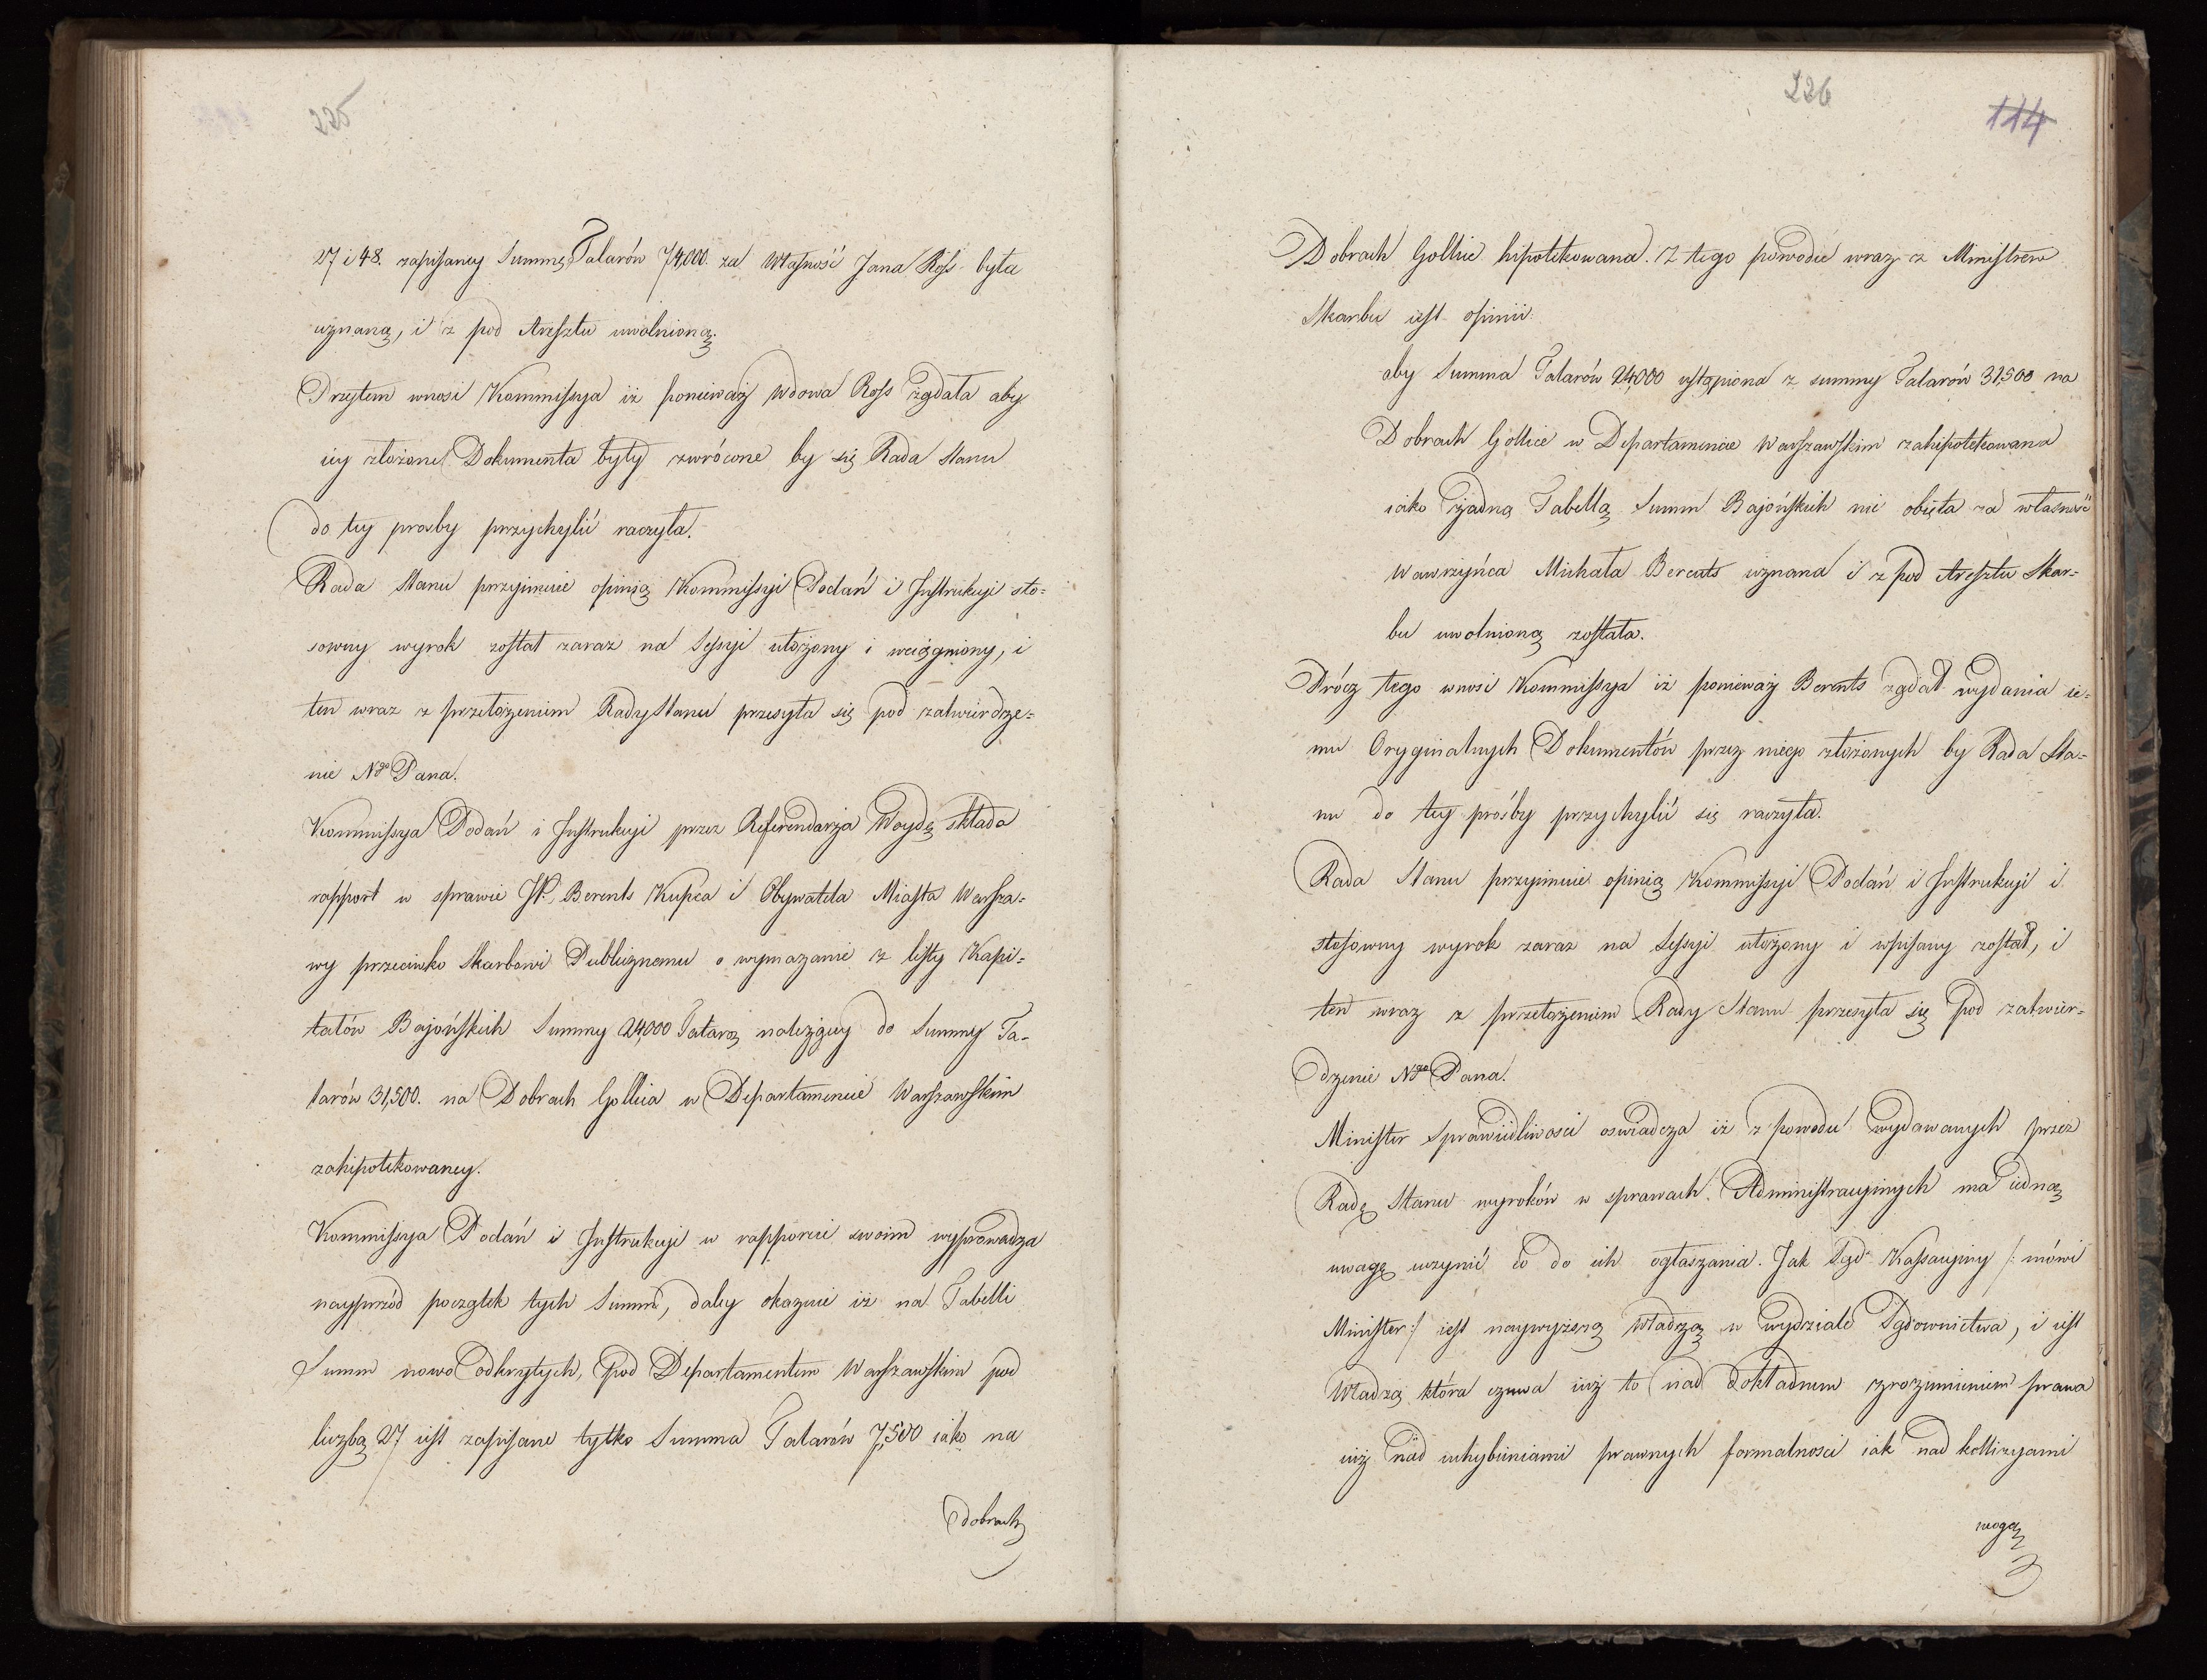 225
27 i 48. zapisaney Summę Talarów 74,000. za Własność Jana Ross była
uznaną, i z pod Aresztu uwolnioną.
Przytem wnosi Kommissya iż ponieważ Wdowa Ross żądała aby
iey złożone Dokumenta były zwrócone by się Rada Stanu
do tey prosby przychylić raczyła.
Rada Stanu przyimuie opinią Kommissyi Podań i Instrukcyi sto=
sowny wyrok został zaraz na Sessyi ułożony i wciągniony, i
ten wraz z przełożeniem Rady Stanu przesyła się pod zatwierdze=
nie Ngo Pana.
Kommissya Podań i Instrukcyi przez Referendarza Woydę składa
rapport w sprawie JP. Berents Kupca i Obywatela Miasta Warsza=
wy przeciwko Skarbowi Publicznemu o wymazanie z listy Kapi=
tałów Bajońskich Summy 24,000 Talarą należącey do Summy Ta=
larów 31,500. na Dobrach Gollice w Departamencie Warszawskim
zahipotekowaney.
Kommissya Podań i Instrukcyi w rapporcie swoim wyprowadza
nayprzód początek tych Summ, daley okazuie iż na Tabelli
Summ nowo odkrytych, pod Departamentem Warszawskim pod
liczbą 27 iest zapisane tylko Summa Talarów 7,500 iako na
Dobrach
226
114
Dobrach Gollice hipotekowana. Z tego powodu wraz z Ministrem
Skarbu iest opinii:
aby Summa Talarów 24,000 ustąpiona z summy Talarów 31,500 na
Dobrach Gollice w Departamencie Warszawskim zahipotekowana
iako żadną Tabellą Summ Bajońskich nie obięta za własność
Wawrzyńca Michała Berents uznana i z pod Aresztu Skar=
bu uwolnioną została.
Prócz tego wnosi Kommissya iż ponieważ Berents żądał wydania ie=
mu Oryginalnych Dokumentów przez niego złożonych by Rada Sta=
nu do tey prośby przychylić się raczyła.
Rada Stanu przyimuie opinią Kommissyi Podań i Instrukcyi i
stosowny wyrok zaraz na Sessyi ułożony i wpisany został, i
ten wraz z przełożeniem Rady Stanu przesyła się pod zatwier=
dzenie Ngo Pana.
Minister Sprawiedliwosci oswiadcza iż z powodu wydawanych przez
Radę Stanu wyroków w sprawach Administracyinych ma iedną
uwagę uczynić co do ich ogłaszania. Jak Sąd Kassacyiny /: mówi
Minister :/ iest naywyższą Władzą w wydziale Sądownictwa, i iest
Władzą która czuwa iuż to nad dokładnem zrozumieniem prawa
iuż nad uchybieniami prawnych formalnosci iak nad kollizyami
mogą